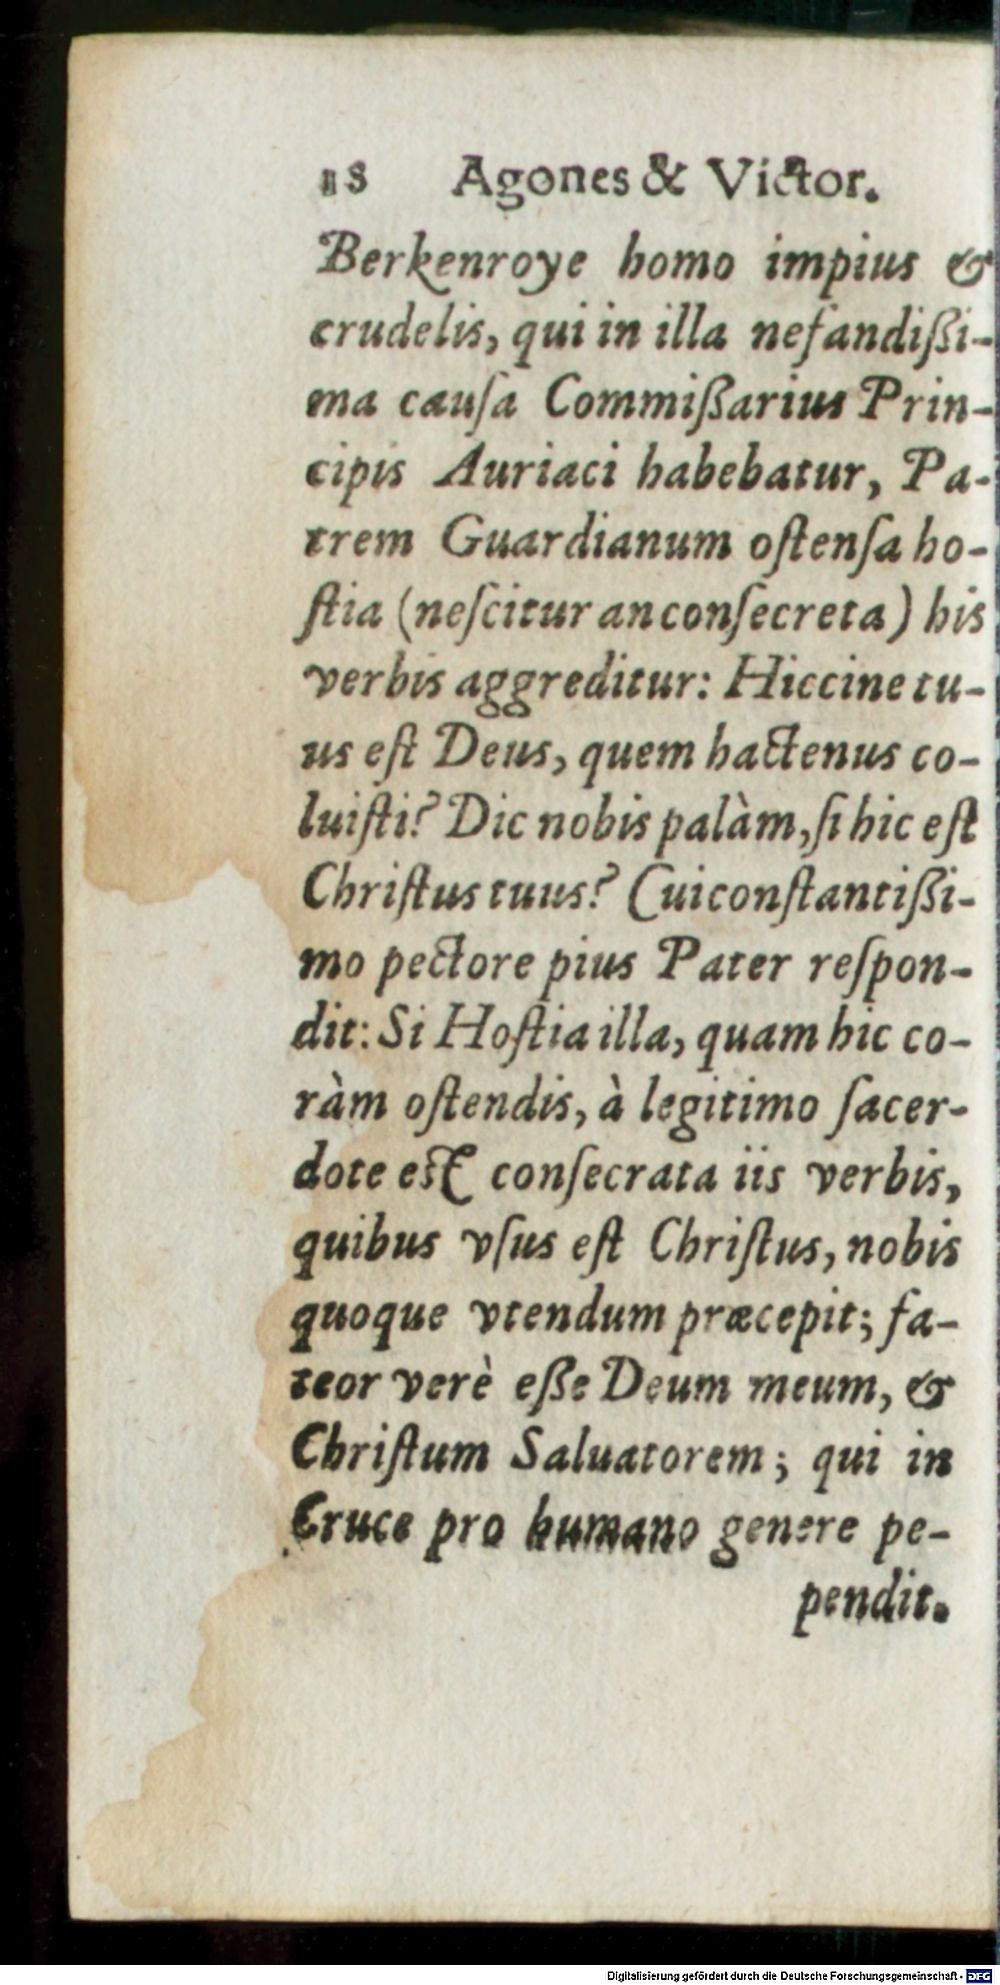 18 Agones & Victor.
Berkenroye homo impius &
crudelis, qui in illa nefandißi-
ma cauſa Commißarius Prin-
cipis Auriaci habebatur, Pa-
trem Guardianum oſtenſa ho-
ſtia (neſcitur an conſecreta) his
verbis aggreditur: Hiccine tu-
us eſt Deus, quem hactenus co-
luiſti? Dic nobis palàm, ſi hic eſt
Chriſtus tuus? Cui conſtantißi-
mo pectore pius Pater reſpon-
dit: Si Hoſtia illa, quam hic co-
ràm oſtendis, à legitimo ſacer-
dote est conſecrata iis verbis,
quibus vſus eſt Chriſtus, nobis
quoque vtendum præcepit; fa-
teor verè eße Deum meum, &
Chriſtum Saluatorem; qui in
Cruce pro humano genere pe-
pendit.
Digitalisierung gefördert durch die Deutsche Forschungsgemeinschaft - DFG